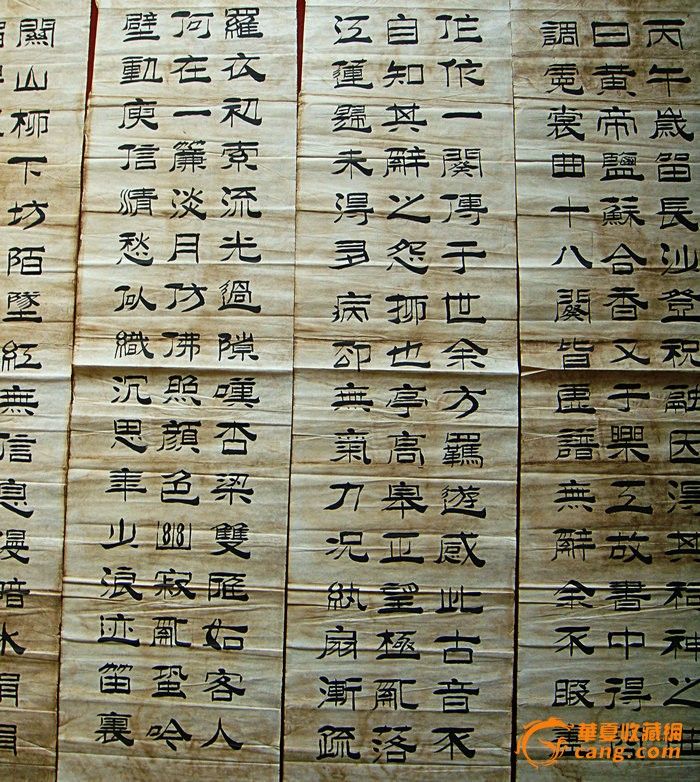 丙午歲留長沙登祝融因得其祠神之
曰黃帝鹽蘇合香又于樂工故書中得
調霓裳曲十八闋皆虛譜無辭余不暇
作作一闋傳于世余方羈遊感此古音不
自知其辭之怨抑也亭高皋正望極亂落
江蓮歸未得多病卻無氣力況紈扇漸疏
羅衣初索流光過隙嘆杏梁雙雁如客人
何在一簾淡月仿佛照顏色幽寂亂蛩吟
壁動庾信清愁似織沉思年少浪迹笛裏
關山柳下坊陌墜紅無信息漫暗水涓涓
華夏收藏網
cang.com